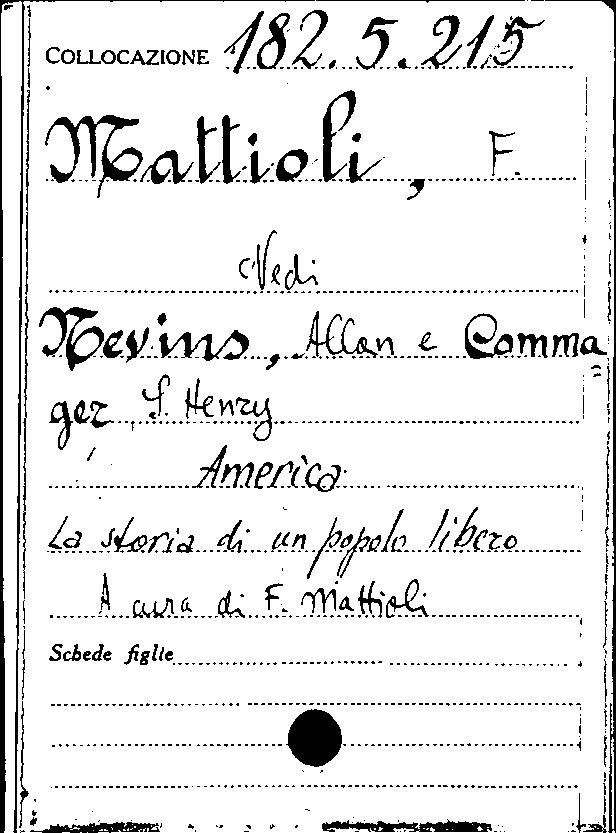 COLLOCAZIONE 182.5.215
Mattioli, F.
Vedi
Nevins, Allan e Comma=
ger, S. Henry
America
La storia di un popolo libero
A cura di F. Mattioli
Schede figlie